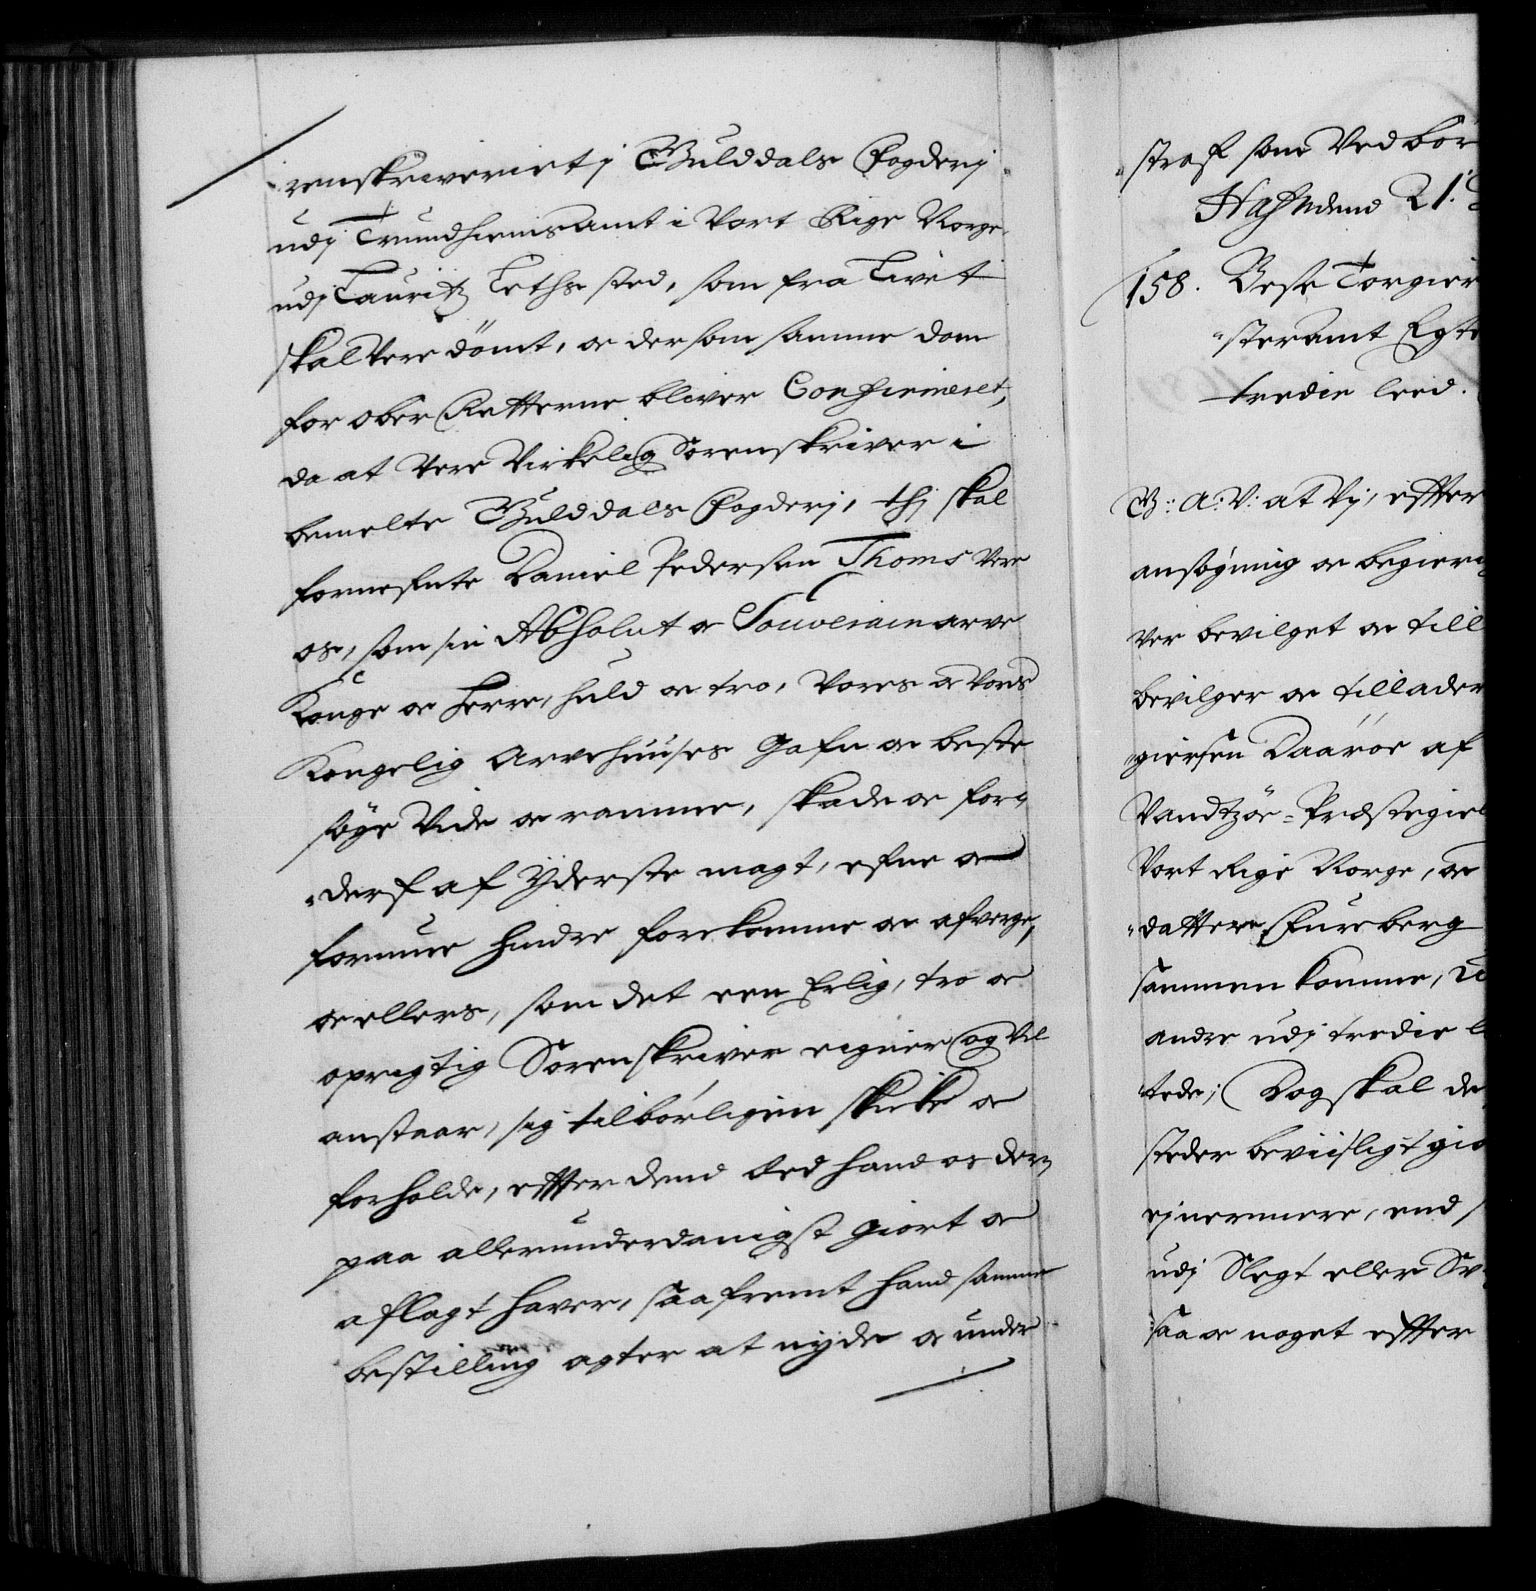 renskriveriet j Gulddals Fogderj
udj Trundhiems amt i Vort Rige Norge,
udj Lauritz Leths sted, som fra Livet
skal Vere dömt, oc dersom samme dom
for ober Retterne bliver Confirmeret,
da at Vere Virkelig Sorenskriver i
bemelte Gulddals Fogderj, thj skal
fornefnte Daniel Pedersen Thoms Vere
os, som sin Absolut oc Souverain arve
Konge oc Herre, huld oc tro, Vores oc Vores
Kongelig Arvehuuses Gafn oc beste
söge Vide oc ramme, skade oc for-
derf af Yderste magt, efne oc
formue hindre forekomme oc afverge,
oc ellers, som det een Erlig, tro oc
oprigtig Sorenskriver eigner og Vel
anstaar, sig tilbörligen skicke oc
forholde, effter dend Eed hand os der-
paa allerunderdanigst giort oc
aflagt haver, saafremt hand samme
bestilling agter at nyde oc under
straf som Vedbör
Hafn dend 21.
158. Vese Torgier
steramt Egte
tredie leed.
G: A: V: at Vj, effter
ansögning oc begiering
ver bevilget oc till
bevilger oc tillader
giersen Daaröe af
Vandtzöe-Præstegiel
Vort Rige Norge, oc
datter Fureberg
sammen komme,
andre udj tredie l
tede; Dog skal de
steder beviisligt giö
ej nermere, end
udj Slegt eller Sv
saa oc noget effter